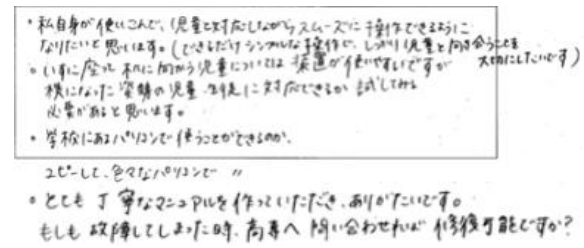 ・私自身が使いこんで、児童と対応しながらスムーズに操作できるように
なりたいと思います。(できるだけシンプルな操作で、しっかり児童と向き合うことを
大切にしたいです)
・いすに座って机に向かう児童については装置が使いやすいですが
横になった姿勢の児童生徒に対応できるか試してみる
必要があると思います。
・学校にあるパソコンで使うことができるのか、
コピーして、色々なパソコンで 〃
・とても丁寧なマニュアルを作っていただき、ありがたいです。
もしも故障してしまった時、高専へ問い合わせれば修復可能ですか?